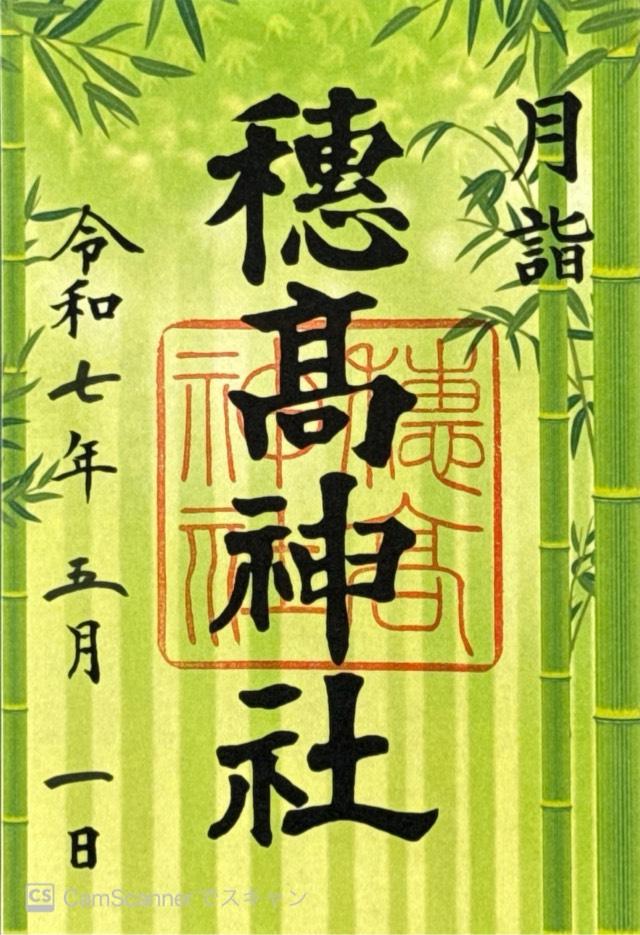 月詣
穗髙神社
穂高
神社
令和七年 五月 一日
CS CamScanner でスキャン